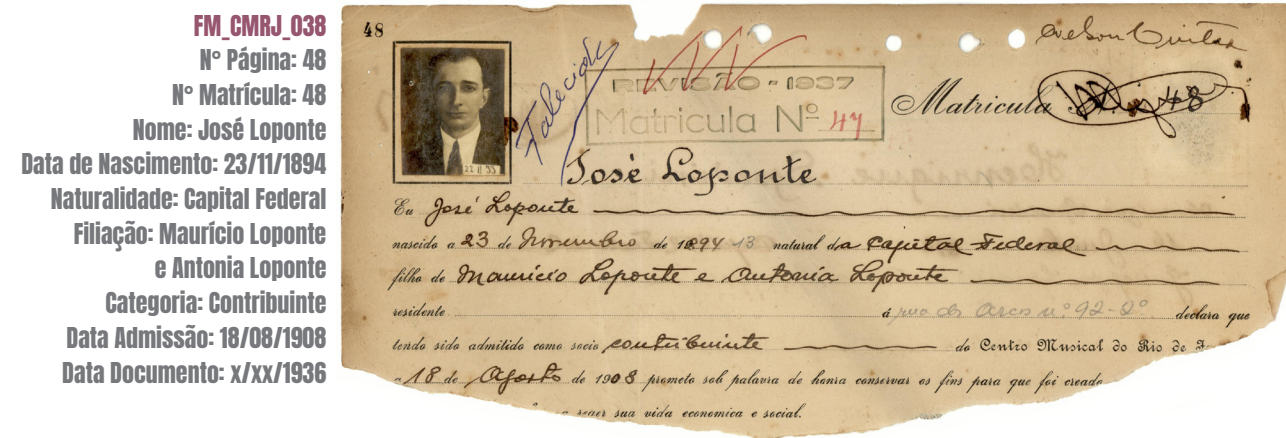 FM_CMRJ_038
Nº Página: 48
Nº Matrícula: 48
Nome: José Loponte
Data de Nascimento: 23/11/1894
Naturalidade: Capital Federal
Filiação: Maurício Loponte
e Antonia Loponte
Categoria: Contribuinte
Data Admissão: 18/08/1908
Data Documento: x/xx/1936
48
Falecido
REVISÃO - 1937
Matricula Nº 47
Matricula 48
José Loponte
Eu José Loponte
nascido a 23 de Novembro de 1894 13 natural da Capital Federal
filho de Mauricio Loponte e Antonia Loponte
residente á rua dos Arcos nº 92-2º declara que
tendo sido admitido como socio contribuinte do Centro Musical do Rio de
18 de Agosto de 1908 prometo sob palavra de honra conservar os fins para que foi creado
sua vida economica e social.